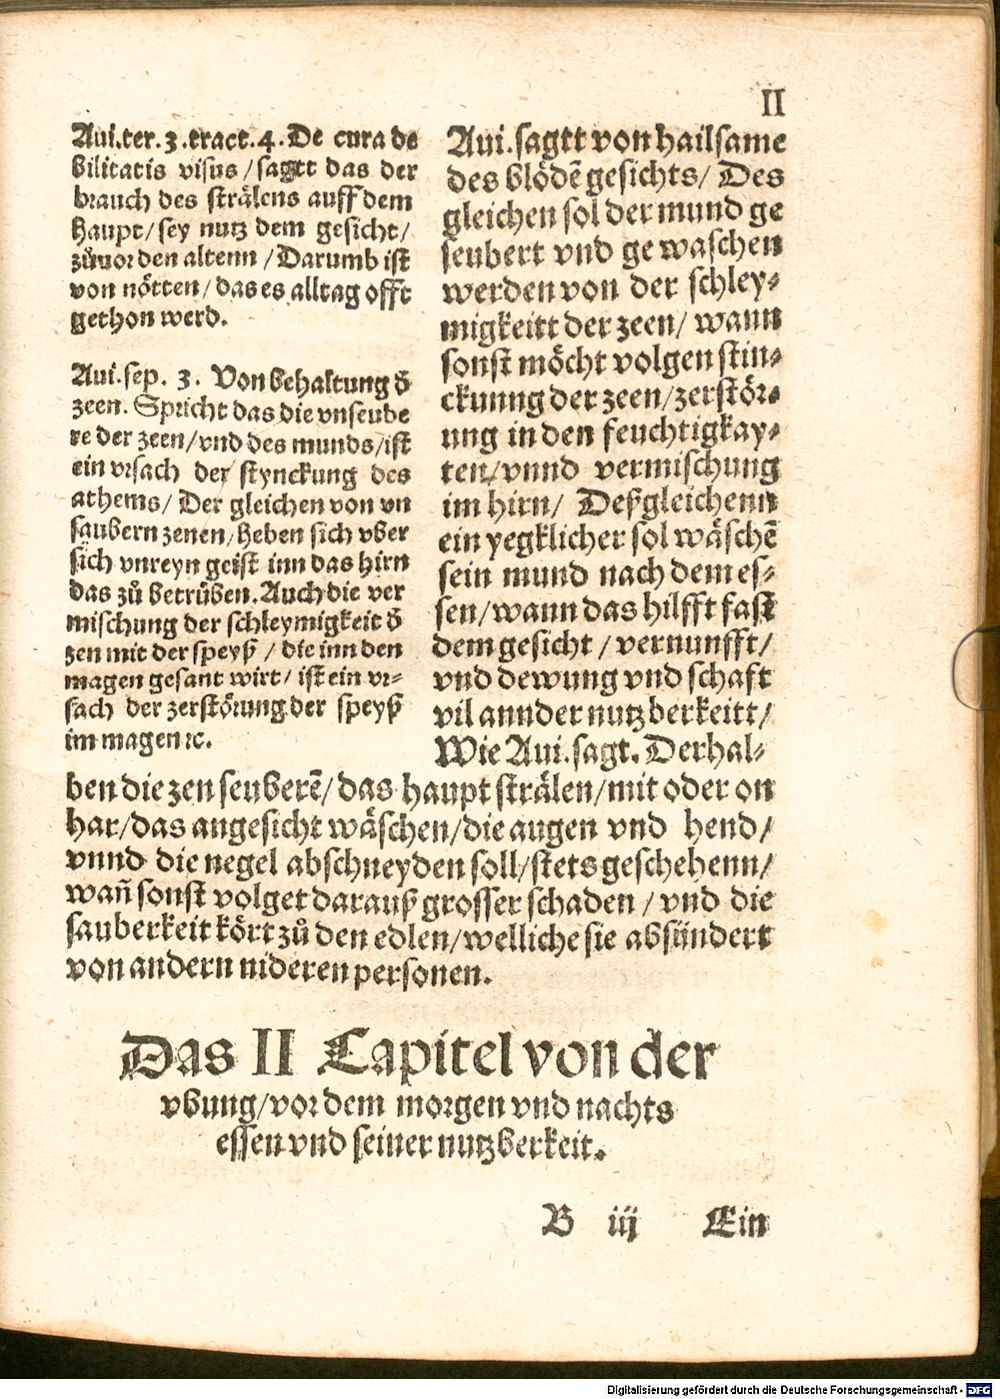 II
Aui.ter.3.tract.4.De cura de
bilitatis visus/sagtt das der
brauch des strälens auff dem
haupt/sey nutz dem gesicht/
zůuor den altenn/Darumb ist
von nötten/das es alltag offt
gethon werd.
Aui.sep. 3. Von behaltung d̄
zeen. Spricht das die vnseube
re der zeen/vnd des munds/ist
ein vrsach der stynckung des
athems/ Der gleichen von vn
saubern zenen/heben sich vber
sich vnreyn geist inn das hirn
das zů betrüben.Auch die ver
mischung der schleymigkeit d̄
zen mit der speyß / die inn den
magen gesant wirt/ ist ein vr-
sach der zerstörung der speyß
im magen ꝛc.
Aui.sagtt von hailsame
des blödē gesichts/ Des
gleichen sol der mund ge
seubert vnd ge waschen
werden von der schley-
migkeitt der zeen/ wann
sonst möcht volgen stin-
ckunng der zeen/zerstör-
ung in den feuchtigkay-
ten/vnnd vermischung
im hirn/ Deßgleichenn
ein yegklicher sol wäschē
sein mund nach dem es-
sen/wann das hilfft fast
dem gesicht / vernunfft/
vnd dewung vnd schaft
vil annder nutzberkeitt/
Wie Aui.sagt. Derhal-
ben die zen seuberē/das haupt strälen/mit oder on
har/das angesicht wäschen/die augen vnd hend/
vnnd die negel abschneyden soll/stets geschehenn/
wañ sonst volget darauß grosser schaden / vnd die
sauberkeit kört zů den edlen/welliche sie absündert
von andern nideren personen.
Das II Capitel von der
vbung/vor dem morgen vnd nachts
essen vnd seiner nutzberkeit.
B iij Ein
Digitalisierung gefördert durch die Deutsche Forschungsgemeinschaft - DFG